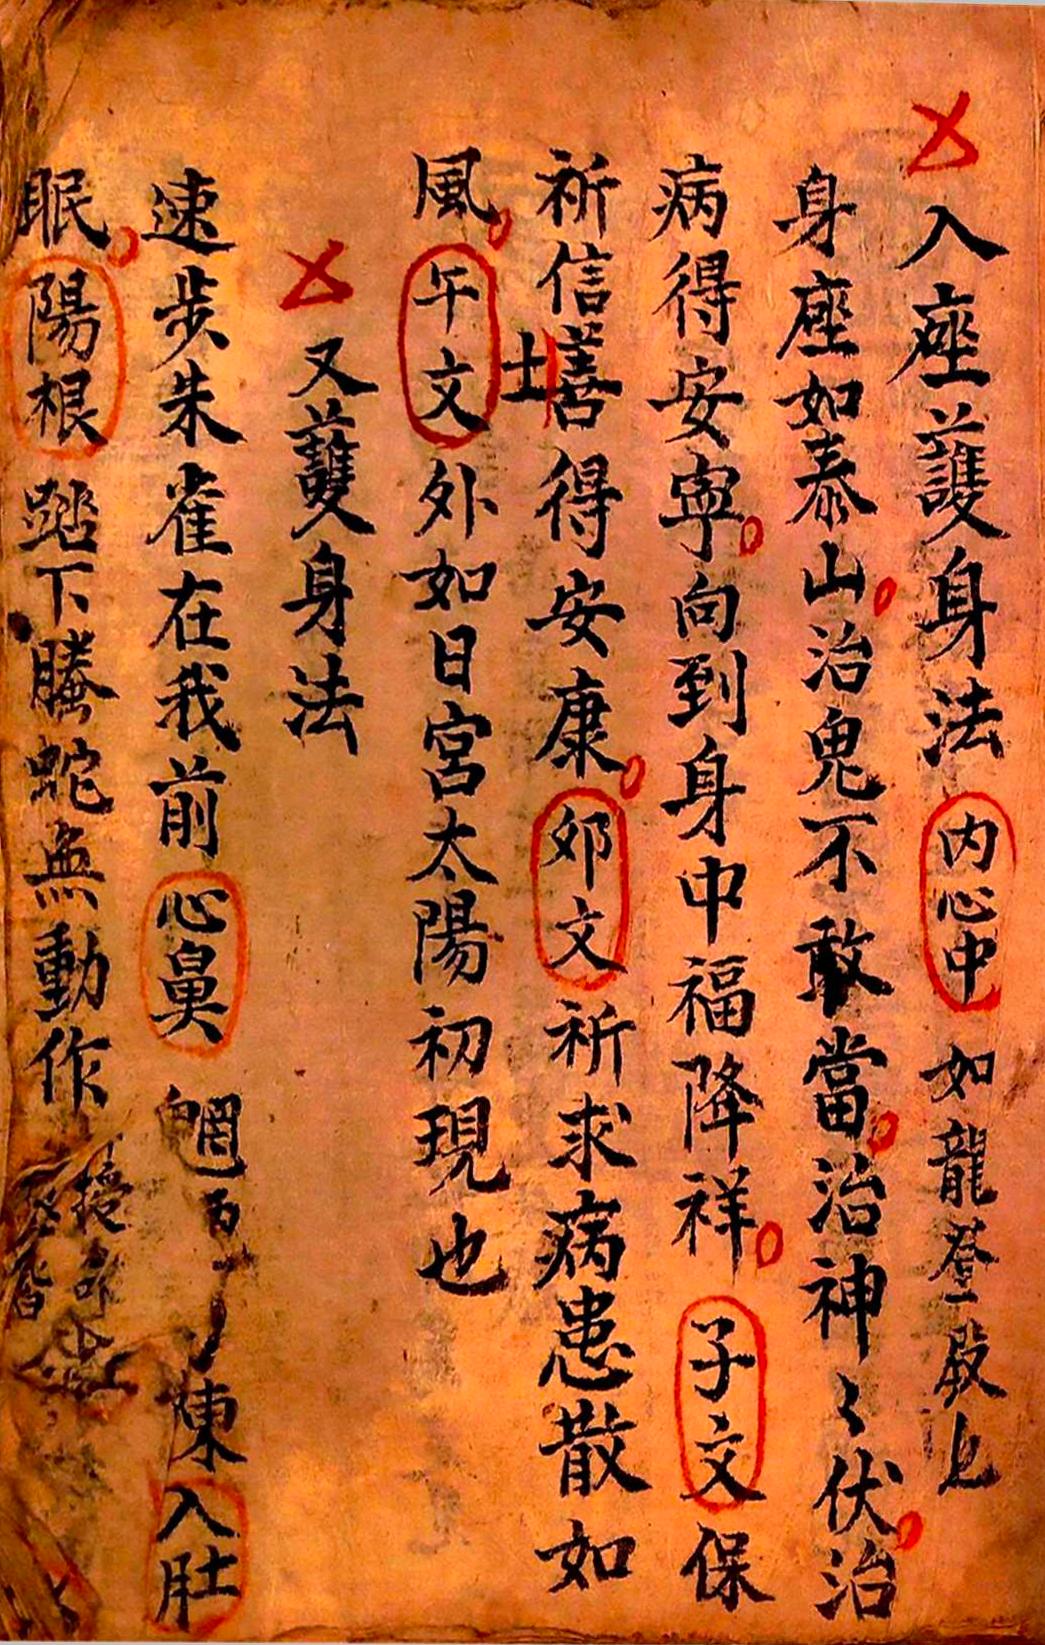 入座護身法內心中如龍登殿上
身座如泰山治鬼不敢當治神〻伏治
病得安寧向到身中福降祥子文保
祈信士善得安康卯文祈求病患散如
風午文外如日宮太陽初現也
又護身法
速步朱雀在我前心鼻 陳入肚
眠陽根踏下螣蛇無動作